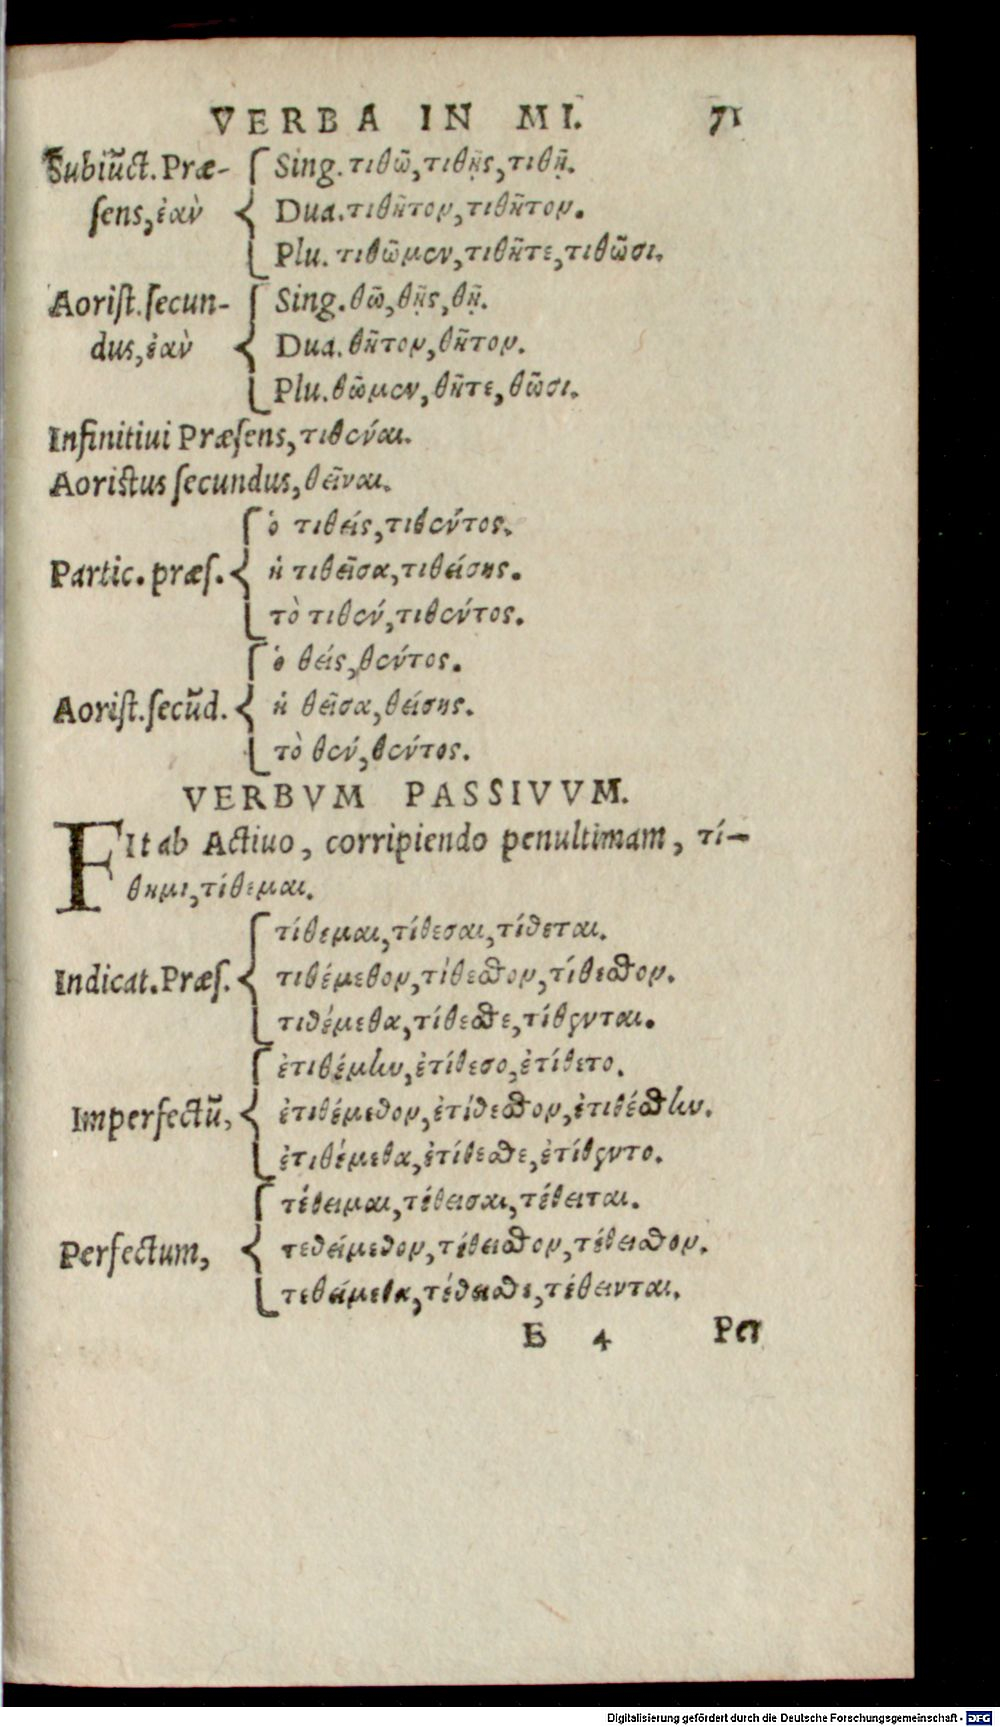 VERBA IN MI. 71
Subiũct. Præ- Sing. τιθῶ, τιθῇς, τιθῇ.
sens, ἐὰν Dua. τιθῆτον, τιθῆτον.
Plu. τιθῶμεν, τιθῆτε, τιθῶσι.
Aorist. secun- Sing. θῶ, θῇς, θῇ.
dus, ἐὰν Dua. θῆτον, θῆτον.
Plu. θῶμεν, θῆτε, θῶσι.
Infinitiui Præsens, τιθέναι.
Aoristus secundus, θεῖναι.
ὁ τιθείς, τιθέντος.
Partic. præs. ἡ τιθεῖσα, τιθείσης.
τὸ τιθέν, τιθέντος.
ὁ θείς, θέντος.
Aorist. secũd. ἡ θεῖσα, θείσης.
τὸ θέν, θέντος.
VERBVM PASSIVVM.
FIt ab Actiuo, corripiendo penultimam, τί-
θημι, τίθεμαι.
τίθεμαι, τίθεσαι, τίθεται.
Indicat. Præs. τιθέμεθον, τίθεσθον, τίθεσθον.
τιθέμεθα, τίθεσθε, τίθενται.
ἐτιθέμην, ἐτίθεσο, ἐτίθετο.
Imperfectũ, ἐτιθέμεθον, ἐτίθεσθον, ἐτιθέσθην.
ἐτιθέμεθα, ἐτίθεσθε, ἐτίθεντο.
τέθειμαι, τέθεισαι, τέθειται.
Perfectum, τεθείμεθον, τέθεισθον, τέθεισθον.
τεθείμεθα, τέθεισθε, τέθεινται.
E 4 Per
Digitalisierung gefördert durch die Deutsche Forschungsgemeinschaft - DFG